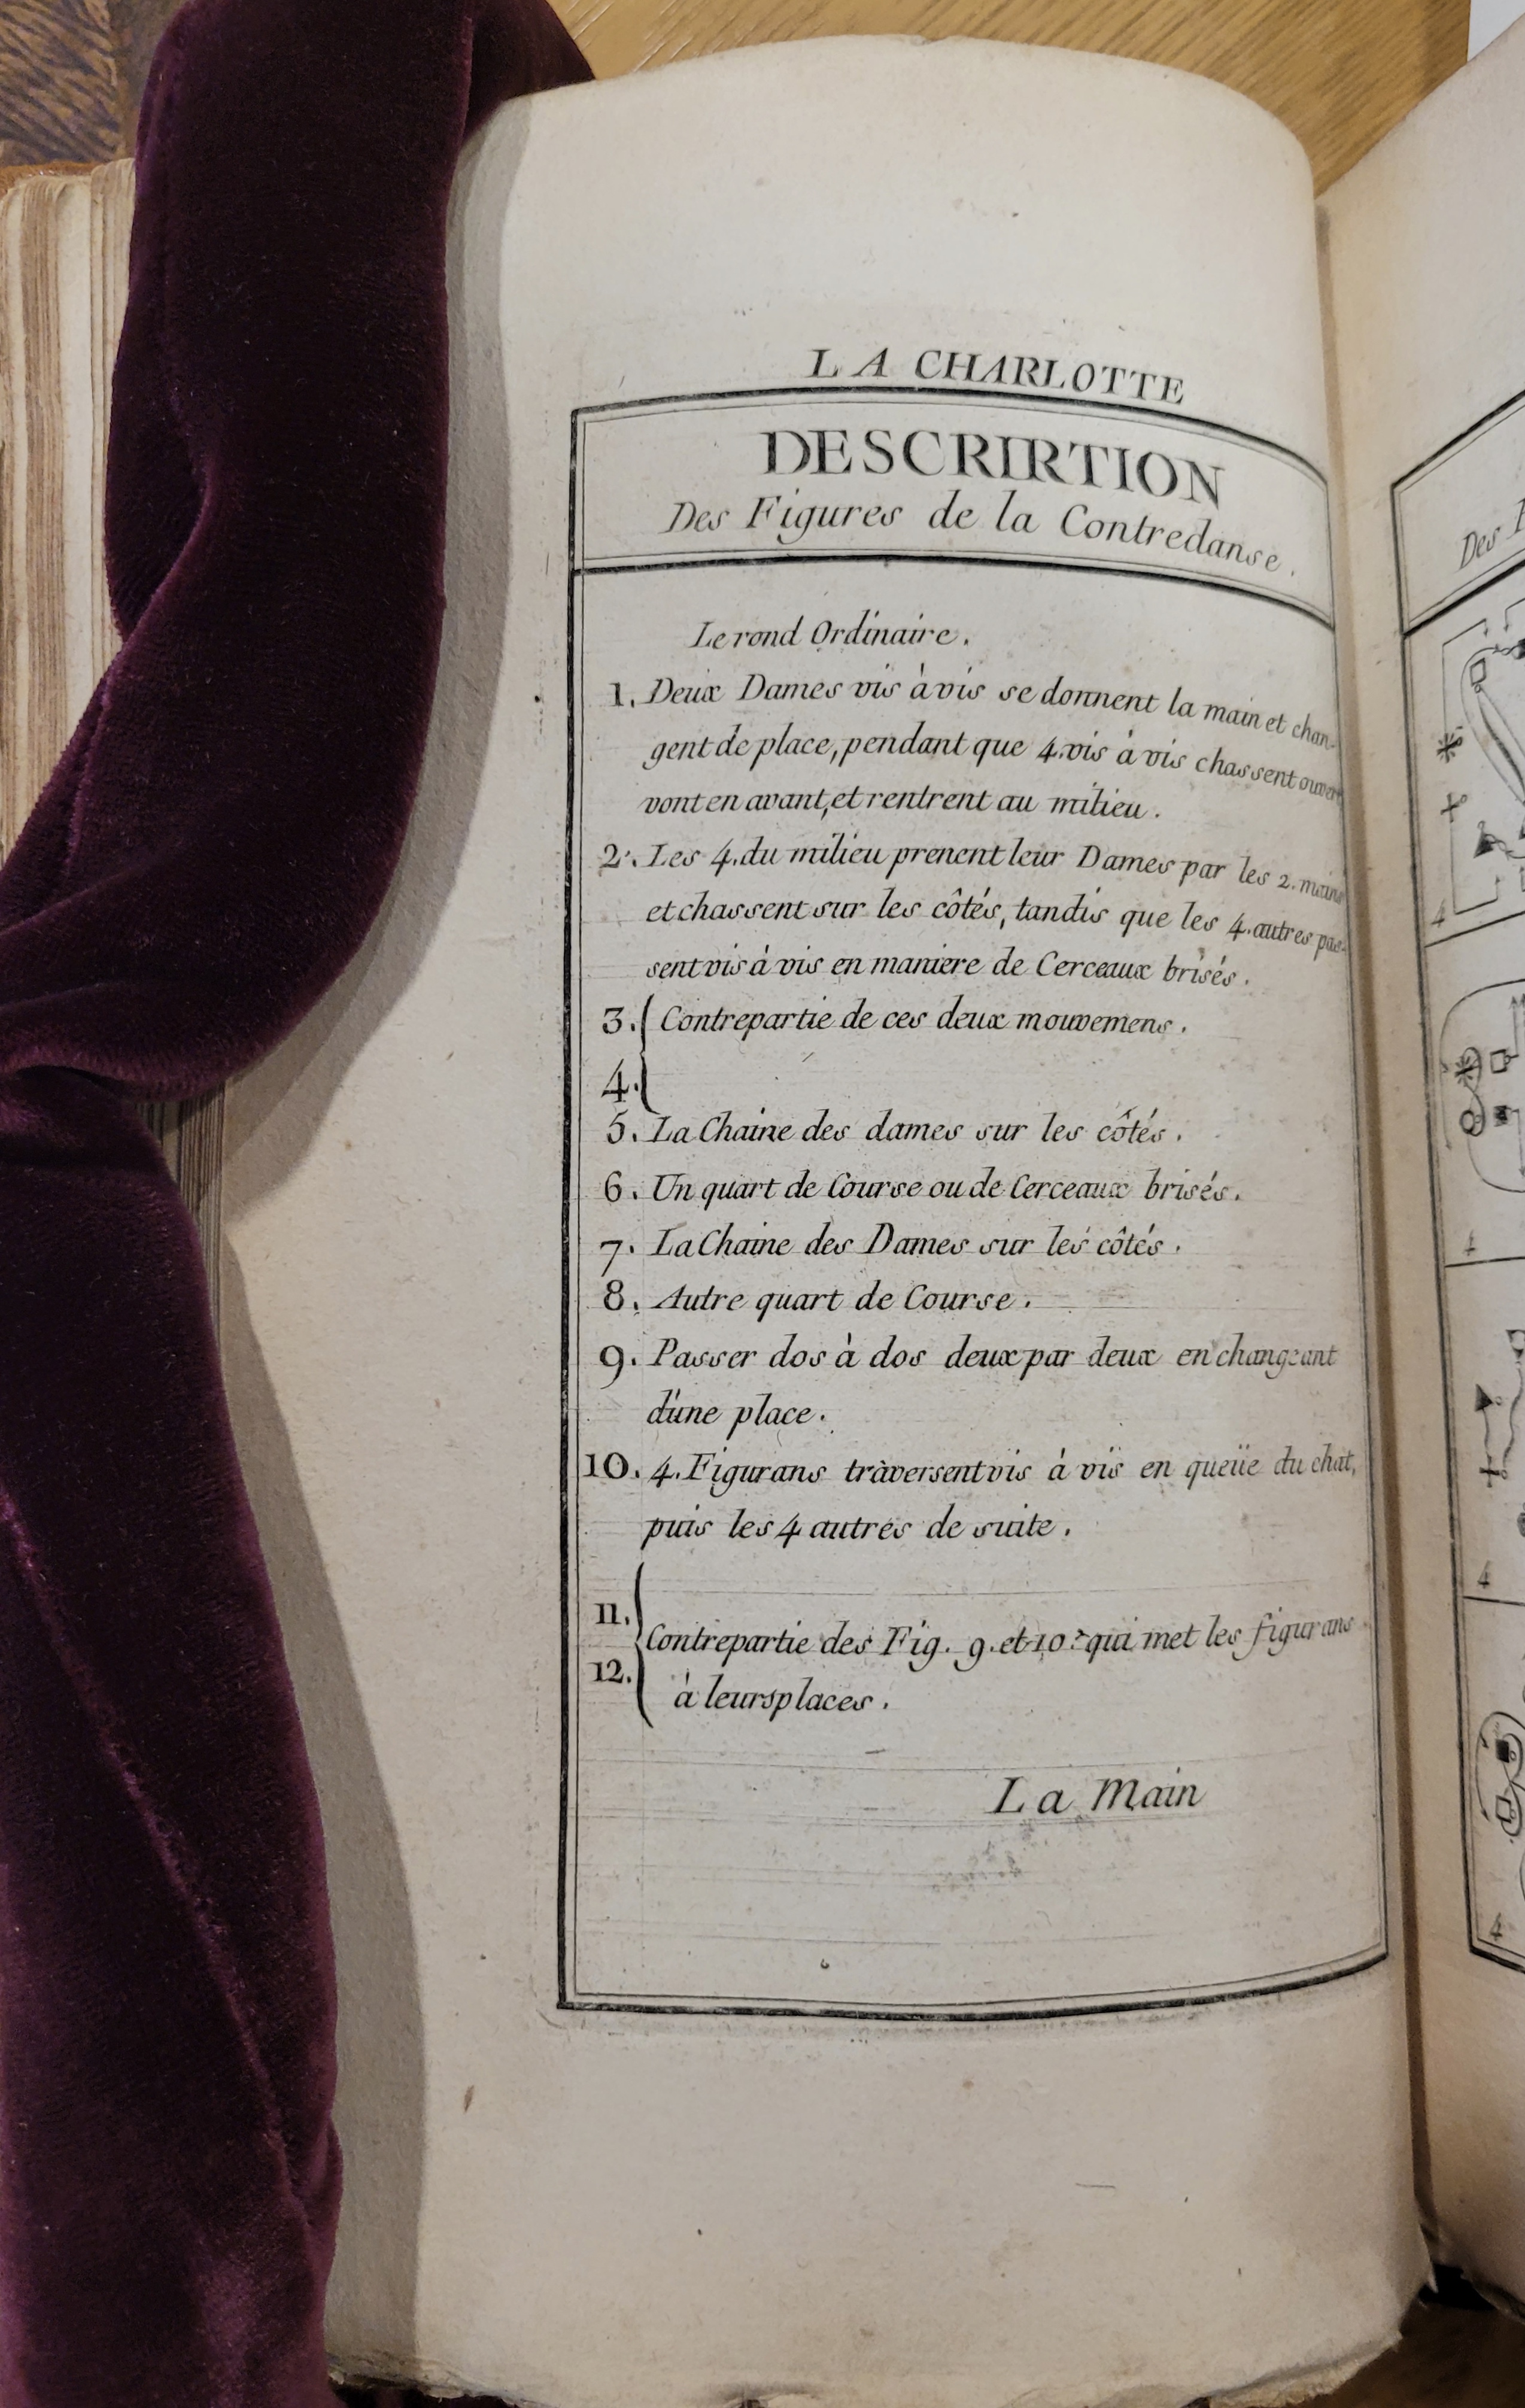 LA CHARLOTTE
DESCRIRTION
Des Figures de la Contredanse.
Le rond Ordinaire.
1. Deux Dames vis à vis se donnent la main et chan-
gent de place, pendant que 4. vis à vis chassent ouvert
vont en avant, et rentrent au milieu.
2. Les 4. du milieu prenent leur Dames par les 2. mains
et chassent sur les côtés, tandis que les 4. autres pas-
sent vis à vis en maniere de Cerceaux brisés.
3. Contrepartie de ces deux mouvemens.
4.
5. La Chaine des dames sur les côtés.
6. Un quart de Course ou de Cerceaux brisés.
7. La Chaine des Dames sur les côtés.
8. Autre quart de Course.
9. Passer dos à dos deux par deux en changeant
d'une place.
10. 4. Figurans tràversent vis à vis en queüe du chat,
puis les 4 autres de suite.
11.
Contrepartie des Fig. 9. et 10.e qui met les figurans
12.
à leurs places.
La Main
Des
4
4
4
4